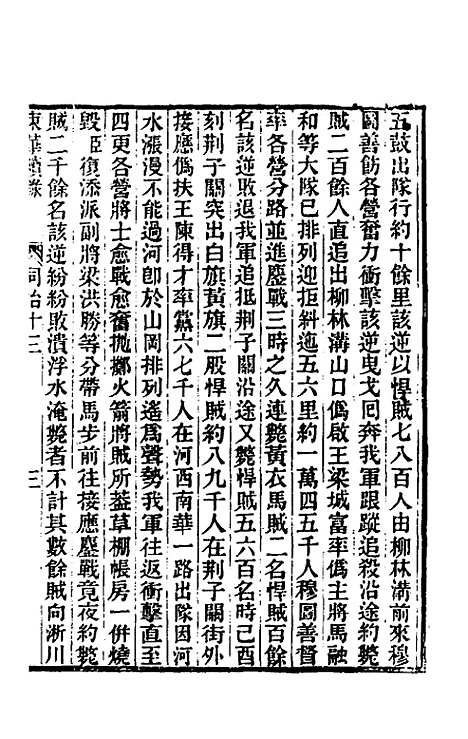 五鼓出隊行約十餘里該逆以悍賊七八百人由柳林溝前來穆
圖善飭各營奮力衝擊該逆曳戈囘奔我軍跟蹤追殺沿途約斃
賊二百餘人直追出柳林溝山口僞啟王梁城富率僞主將馬融
和等大隊已排列迎拒斜迤五六里約一萬四五千人穆圖善督
率各營分路並進鏖戰三時之久連斃黃衣馬賊二名悍賊百餘
名該逆敗退我軍追抵荆子關沿途又斃悍賊五六百名時已酉
刻荆子關突出白旗黃旗二股悍賊約八九千人在荆子關街外
接應僞扶王陳得才率黨六七千人在河西南華一路出隊因河
水漲漫不能過河卽於山岡排列遙爲聲勢我軍往返衝擊直至
四更各營將士愈戰愈奮抛擲火箭將賊所葢草棚帳房一併燒
毀臣復添派副將梁洪勝等分帶馬步前往接應鏖戰竟夜約斃
賊二千餘名該逆紛紛敗潰浮水淹斃者不計其數餘賊向淅川
東華續錄 同治十三 三